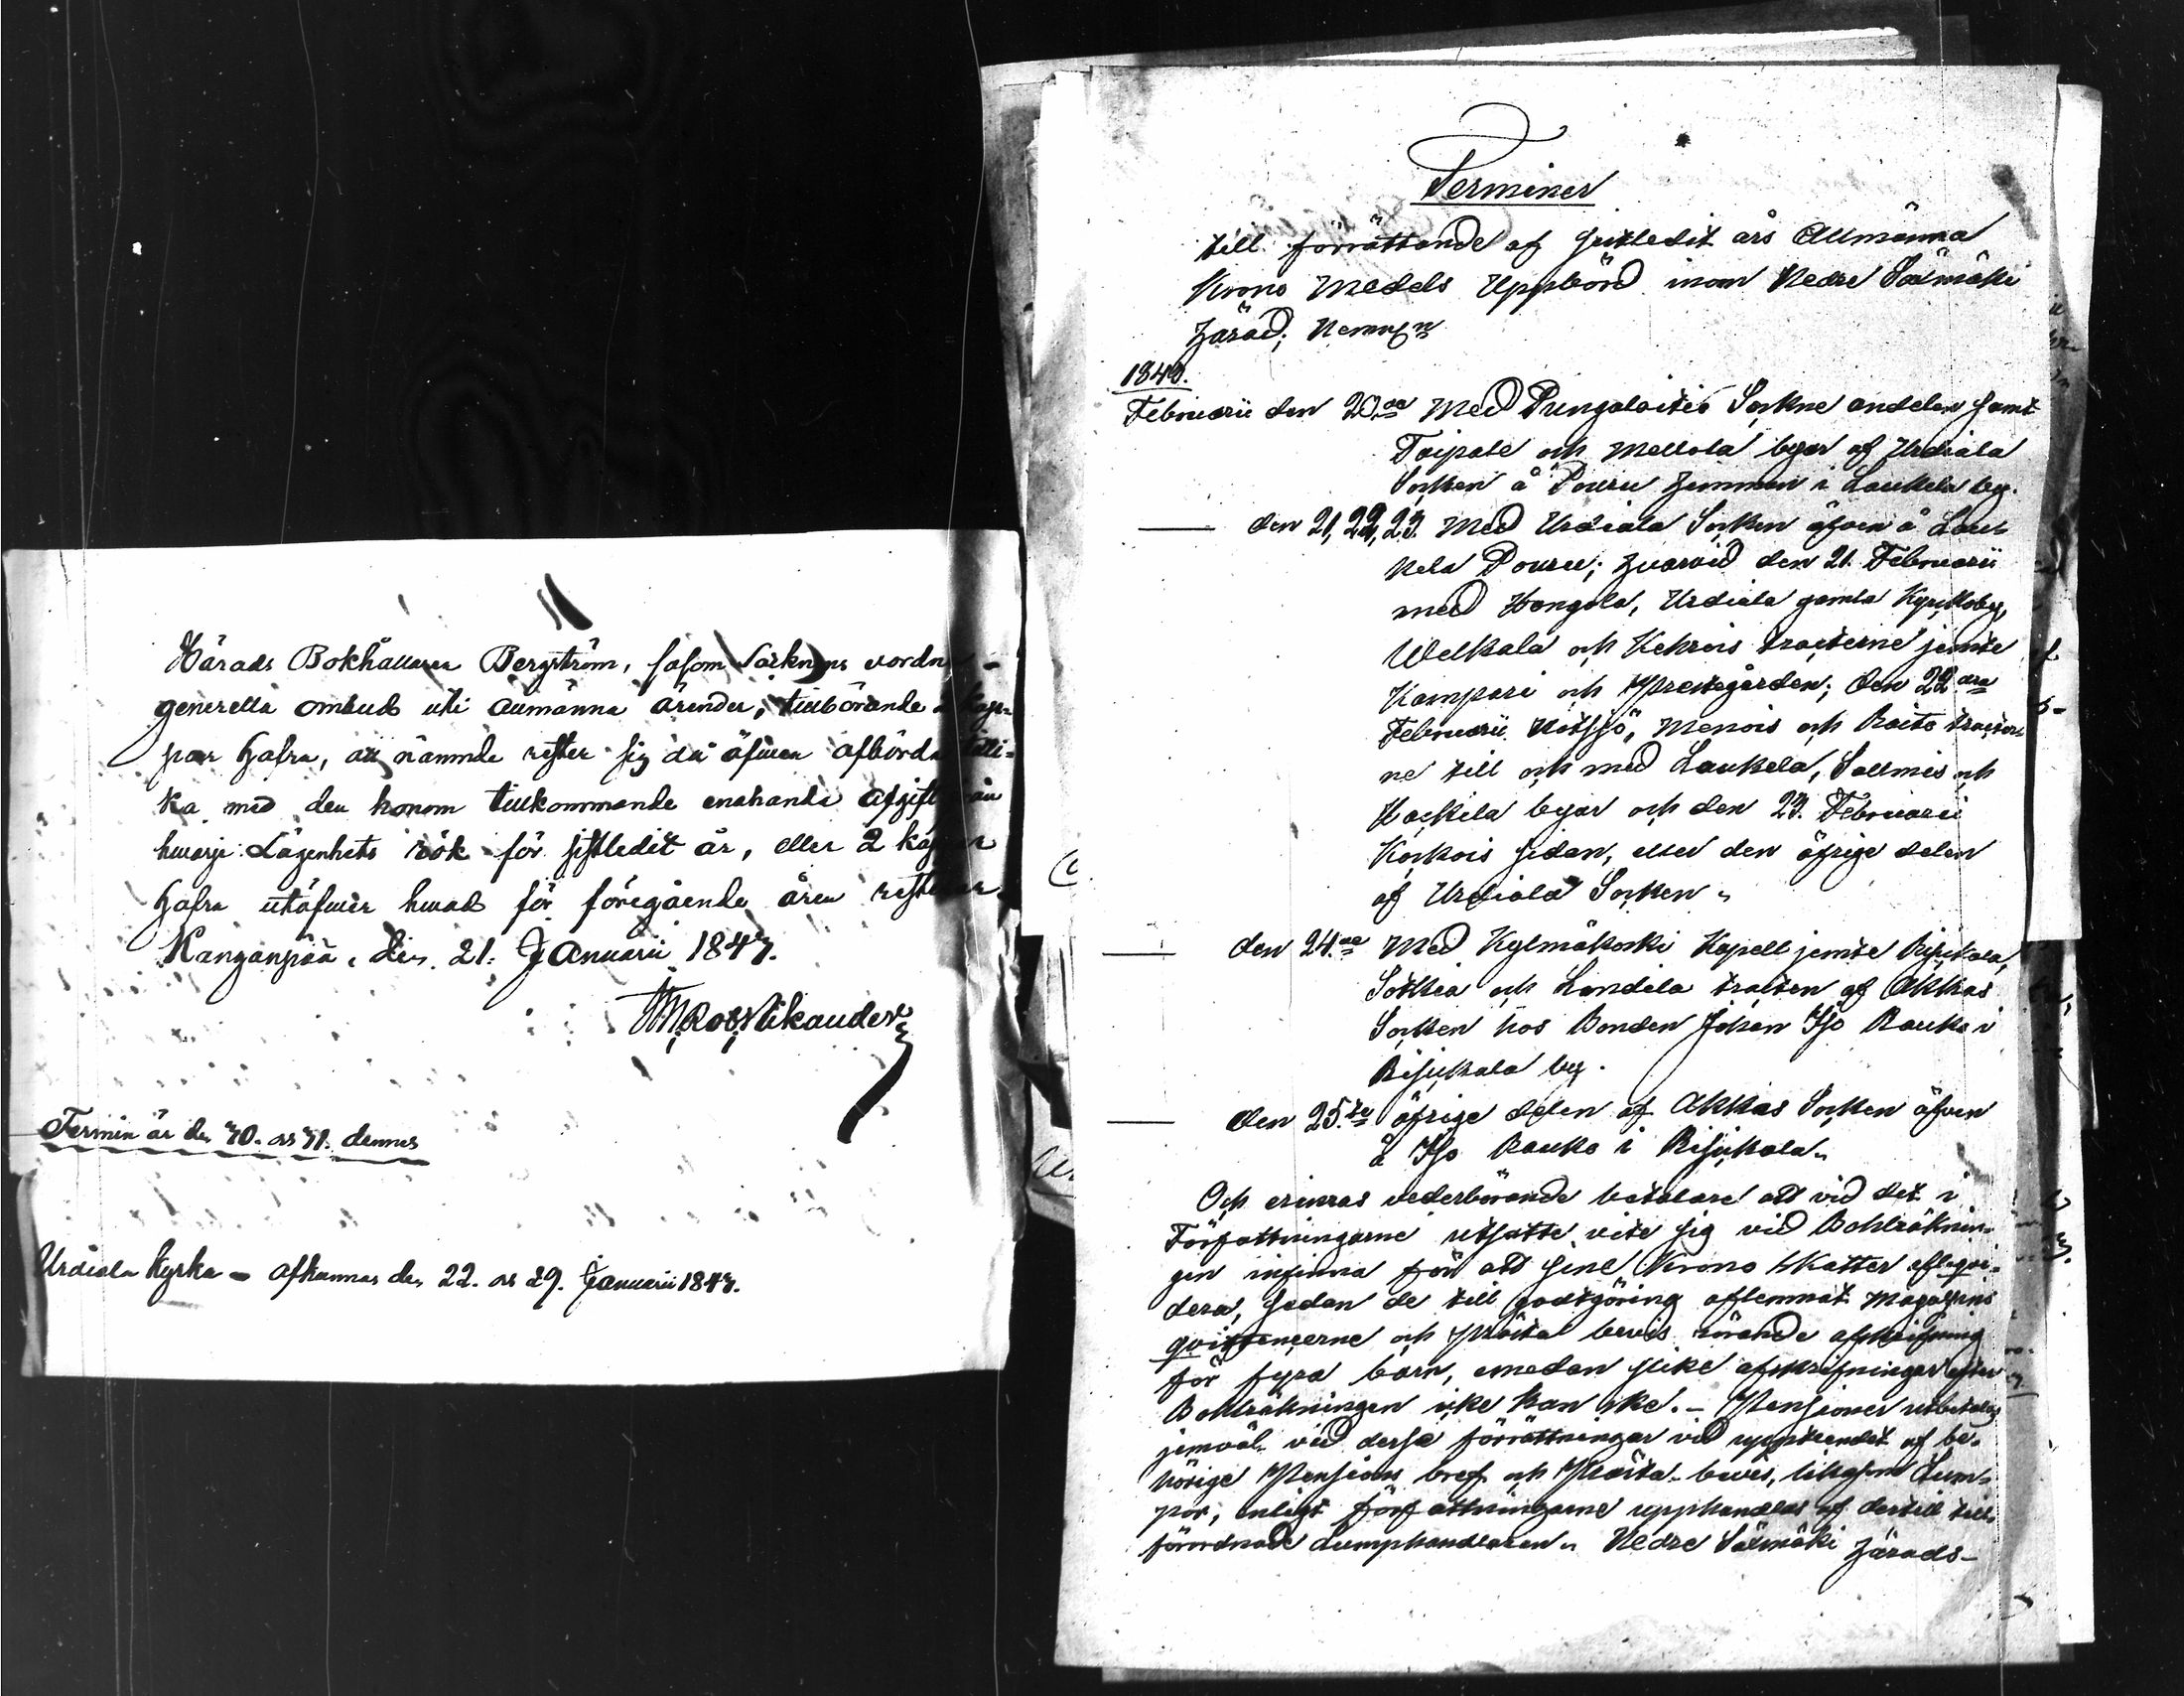 Härads Bokhållaren Bergström, såsom Socknens vordne
generella ombud uti allmänna ärender, tillbörande 2 kap-
par hafra, att nämnde rester sig då äfwen afbörda tilli-
ka med den honom tillkommande enahanda afgift från
hwarje Lägenhets rök för sistledit år, eller 2 kappar
hafra utöfwer hwad för föregående åren resterar.
Kanganpää, den 21. Januarii 1843.
Rob Nikander
Termin är den 30. as 31. dennes
Urdiala kyrka – afkannas den 22. as 29. Januarii 1843.
Terminer
till förrättande af sistledit års Allmänna
Krono Medels Uppbörd inom Nedre Säxmäki
härad; Nemln
1843.
Februarii den 20de Med Pungalaitio Sokne andelen samt
Taipale och Mellola byar af Urdiala
Socken å Pouru hemman i Laukela by.
den 21, 22, 23. Med Urdiala Socken äfven å Lau-
kela Pouru; hvarvid den 21. Februarii
med Hongola, Urdiala gamla Kyrckoby,
Welkala och Kehrois tracterne jemte
Kampari och Prestegården; den 22dra
Februarii Nutsjö, Menois och Raito tracter-
ne till och med Laukela, Salmis och
Hackila byar och den 23. Februarii
Korkois sidan, eller den öfrige delen
af Urdiala Socken.
den 24de Med Kylmäkoski Kapell jemte Risikala,
Sotkia och Londila tracten af Akkas
Socken hos Bonden Johan Iso Rauko i
Risikala by.
den 25te öfrige delen af Akkas Socken äfven
å Iso Rauko i Risikala.
Och erinras vederbörande betalare att vid det i
Författningarne utsatte vite sig vid Bohlräknin-
gen infinna för att sine Krono Skatter afleqvi-
dera, sedan de till godtgöring aflemnat Magazins
qvittencerne och Präste bevis rörande afskrifning
för fyra barn, emedan slike afskrifningar efter
Bohlräkningen icke kan ske. – Pensioner utbetalas
jemväl vid desse förrättningar vid uppteendet af be-
hörige Pensions bref och Präste-bevis, likasom Lum-
por, enligt författningarne upphandlas af dertill till-
förordnade Lumphandlaren. Nedre Säxmäki härads-